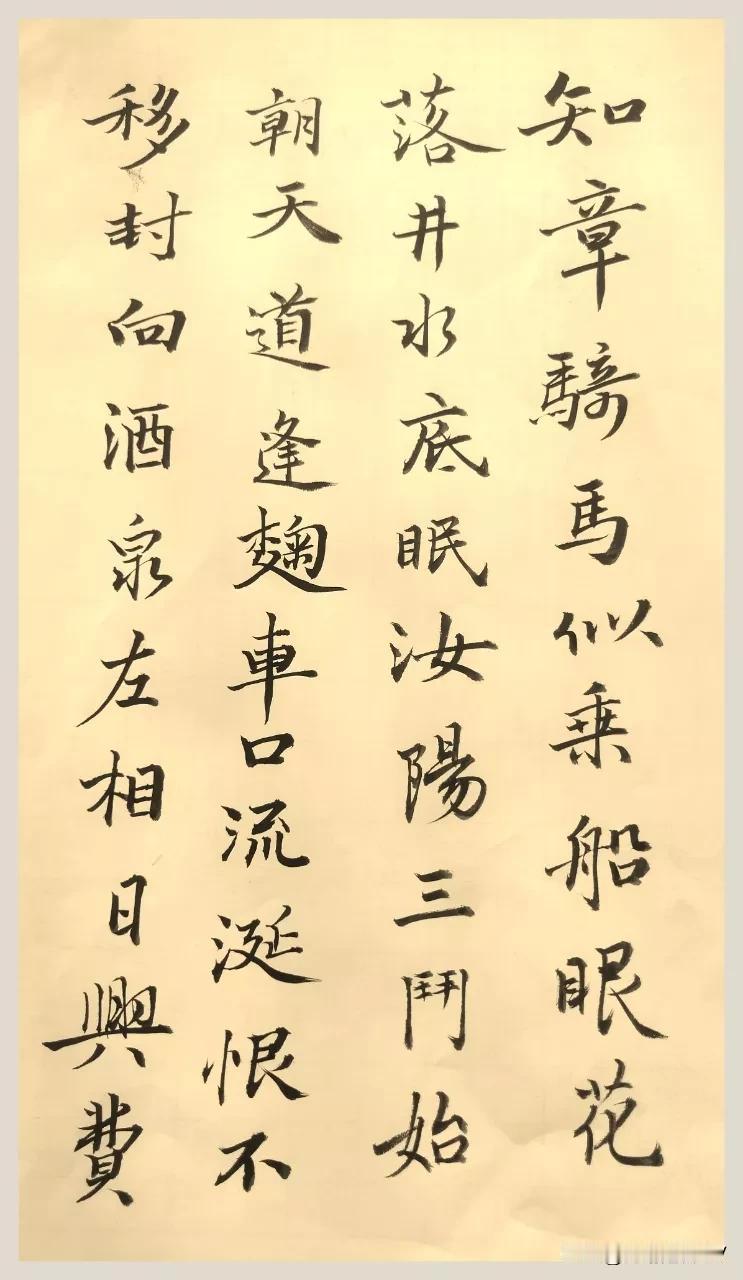 知章騎馬似乘船眼花
落井水底眠汝陽三鬥始
朝天道逢麹車口流涎恨不
移封向酒泉左相日興費